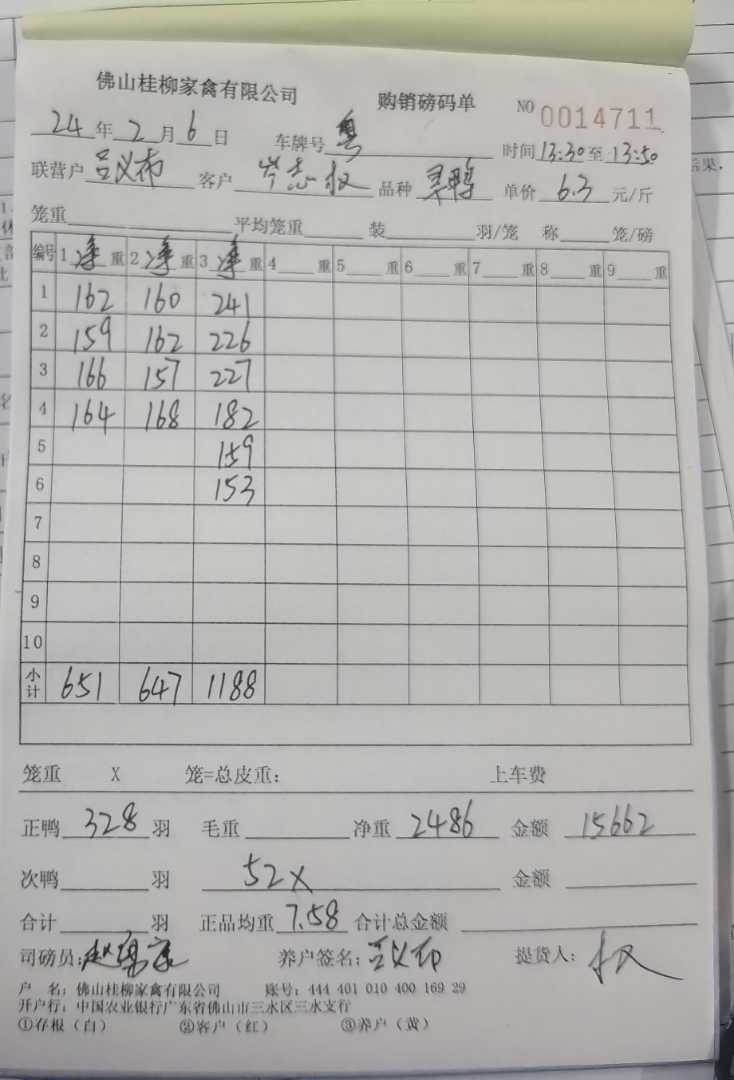 佛山桂柳家禽有限公司 购销磅码单 NO 0014711
24年2月6日 车牌号 粤 时间13:30至13:50
联营户 吕义布 客户 岑志权 品种 单价 6.3 元/斤
笼重 平均笼重 装 羽/笼 称 笼/磅
编号 1 净 重 2 净 重 3 净 重 4 重 5 重 6 重 7 重 8 重 9 重
1 162 160 241
2 159 162 226
3 166 157 227
4 164 168 182
5 159
6 153
7
8
9
10
小计 651 647 1188
笼重 X 笼=总皮重: 上车费
正鸭 328 羽 毛重 净重 2486 金额 15662
次鸭 羽 52X 金额
合计 羽 正品均重 7.58 合计总金额
司磅员: 养户签名: 吕义布 提货人: 权
户 名: 佛山桂柳家禽有限公司 账号: 444 401 010 400 169 29
开户行: 中国农业银行广东省佛山市三水区三水支行
①存根(白) ②客户(红) ③养户(黄)